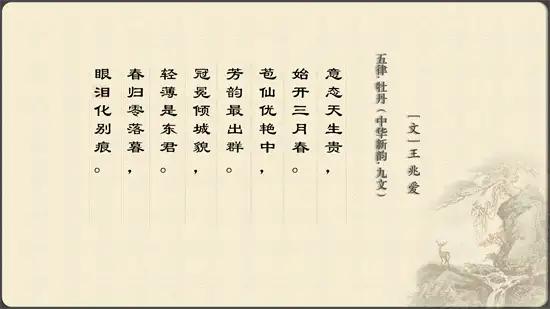 五律·牡丹（中华新韵·九文）
［文］王兆爱
意态天生贵，
始开三月春。
苞仙优艳中，
芳韵最出群。
冠冕倾城貌，
轻薄是东君。
春归零落暮，
眼泪化别痕。